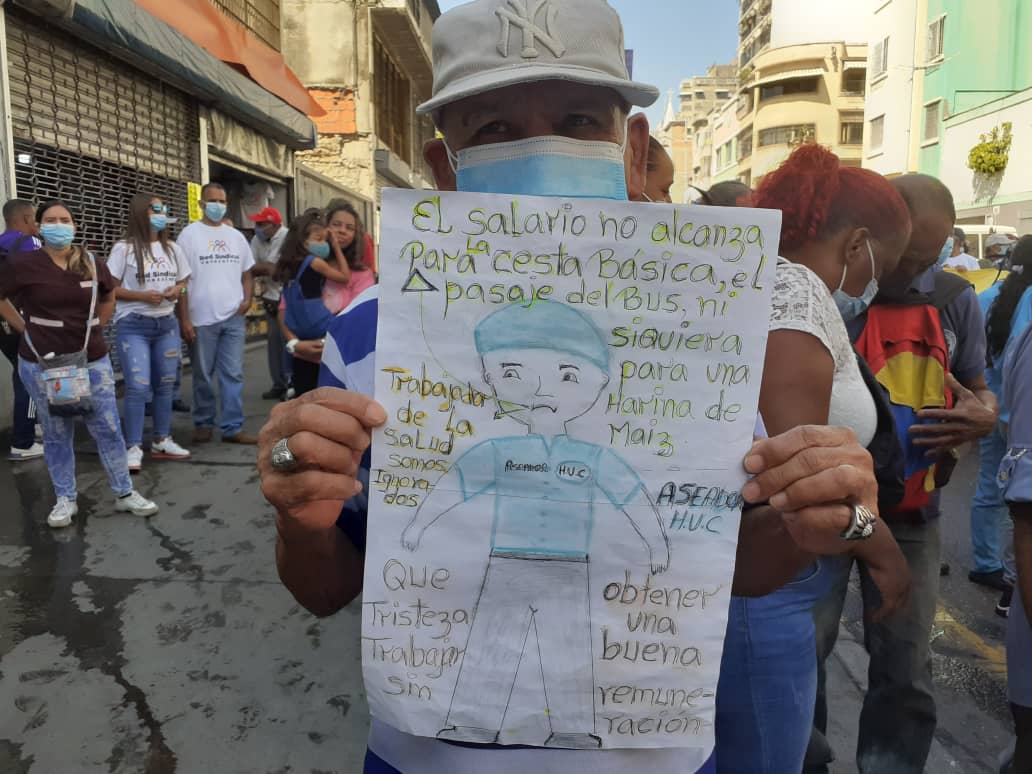 NY
El salario no alcanza
Para la cesta Básica, el
pasaje del Bus, ni
siquiera
para una
Harina de
Maiz
Trabajador
de la
salud
somos
Ignora
dos
ASEADOR H.U.C
ASEADOR
H.U.C
Que
Tristeza
Trabajar
sin
obtener
una
buena
remune-
ración
Red Sindical
Red Sindical